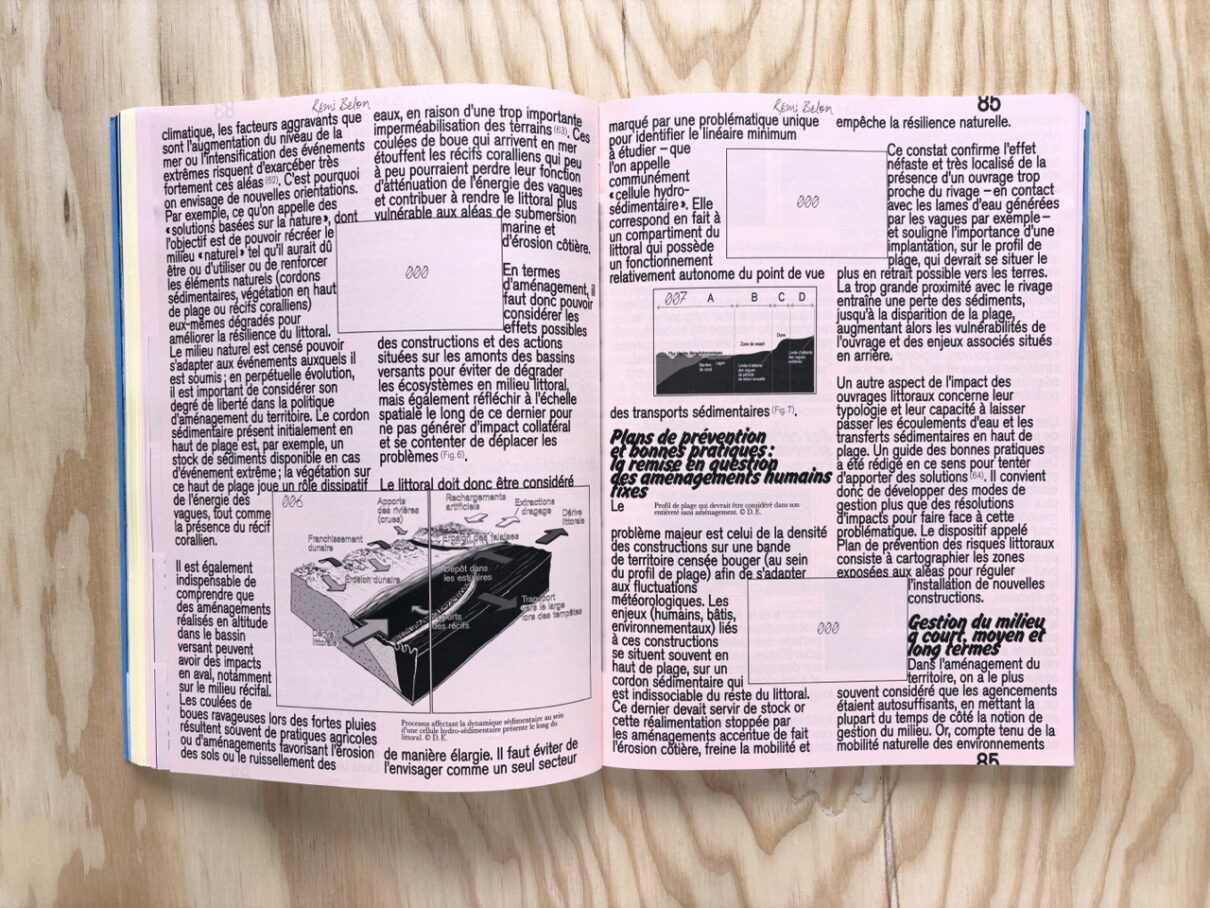 Rémi Belon
climatique, les facteurs aggravants que
sont l'augmentation du niveau de la
mer ou l'intensification des événements
extrêmes risquent d'exarcéber très
fortement ces aléas (62). C'est pourquoi
on envisage de nouvelles orientations.
Par exemple, ce qu'on appelle des
«solutions basées sur la nature», dont
l'objectif est de pouvoir récréer le
milieu «naturel» tel qu'il aurait dû
être ou d'utiliser ou de renforcer
les éléments naturels (cordons
sédimentaires, végétation en haut
de plage ou récifs coralliens)
eux-mêmes dégradés pour
améliorer la résilience du littoral.
Le milieu naturel est censé pouvoir
s'adapter aux événements auxquels il
est soumis ; en perpétuelle évolution,
il est important de considérer son
degré de liberté dans la politique
d'aménagement du territoire. Le cordon
sédimentaire présent initialement en
haut de plage est, par exemple, un
stock de sédiments disponible en cas
d'événement extrême ; la végétation sur
ce haut de plage joue un rôle dissipatif
de l'énergie des
vagues, tout comme
la présence du récif
corallien.
Il est également
indispensable de
comprendre que
des aménagements
réalisés en altitude
dans le bassin
versant peuvent
avoir des impacts
en aval, notamment
sur le milieu récifal.
Les coulées de
boues ravageuses lors des fortes pluies
résultent souvent de pratiques agricoles
ou d'aménagements favorisant l'érosion
des sols ou le ruissellement des
eaux, en raison d'une trop importante
imperméabilisation des terrains (63). Ces
coulées de boue qui arrivent en mer
étouffent les récifs coralliens qui peu
à peu pourraient perdre leur fonction
d'atténuation de l'énergie des vagues
et contribuer à rendre le littoral plus
vulnérable aux aléas de submersion
marine et
d'érosion côtière.
000
En termes
d'aménagement, il
faut donc pouvoir
considérer les
effets possibles
des constructions et des actions
situées sur les amonts des bassins
versants pour éviter de dégrader
les écosystèmes en milieu littoral,
mais également réfléchir à l'échelle
spatiale le long de ce dernier pour
ne pas générer d'impact collatéral
et se contenter de déplacer les
problèmes (Fig. 6).
Le littoral doit donc être considéré
006
Apports
des rivières
(crues)
Rechargements
artificiels
Extractions
/ dragage
Dérive
littorale
Franchissement
dunaire
Erosion des falaises
Erosion dunaire
Dépôt dans
les estuaires
Transport
vers le large
lors des tempêtes
Apports
des récifs
Dérive
littorale
Processus affectant la dynamique sédimentaire au sein
d'une cellule hydro-sédimentaire présente le long du
littoral. © D.E.
de manière élargie. Il faut éviter de
l'envisager comme un seul secteur
Rémi Belon
85
marqué par une problématique unique
pour identifier le linéaire minimum
à étudier – que
l'on appelle
communément
«cellule hydro-
sédimentaire». Elle
correspond en fait à
un compartiment du
littoral qui possède
un fonctionnement
relativement autonome du point de vue
000
007
A
B
C
D
Zone de swash
Dune
Lagon
Barrière
de corail
Limite d'atteinte
des vagues
en période
de retour annuelle
Limite d'atteinte
des vagues
extrêmes
des transports sédimentaires (Fig. 7).
Plans de prévention
et bonnes pratiques :
la remise en question
des aménagements humains
fixes
Le
Profil de plage qui devrait être considéré dans son
entièreté sans aménagement. © D.E.
problème majeur est celui de la densité
des constructions sur une bande
de territoire censée bouger (au sein
du profil de plage) afin de s'adapter
aux fluctuations
météorologiques. Les
enjeux (humains, bâtis,
environnementaux) liés
à ces constructions
se situent souvent en
haut de plage, sur un
cordon sédimentaire qui
est indissociable du reste du littoral.
Ce dernier devait servir de stock or
cette réalimentation stoppée par
les aménagements accentue de fait
l'érosion côtière, freine la mobilité et
empêche la résilience naturelle.
Ce constat confirme l'effet
néfaste et très localisé de la
présence d'un ouvrage trop
proche du rivage – en contact
avec les lames d'eau générées
par les vagues par exemple –
et souligne l'importance d'une
implantation, sur le profil de
plage, qui devrait se situer le
plus en retrait possible vers les terres.
La trop grande proximité avec le rivage
entraîne une perte des sédiments,
jusqu'à la disparition de la plage,
augmentant alors les vulnérabilités de
l'ouvrage et des enjeux associés situés
en arrière.
Un autre aspect de l'impact des
ouvrages littoraux concerne leur
typologie et leur capacité à laisser
passer les écoulements d'eau et les
transferts sédimentaires en haut de
plage. Un guide des bonnes pratiques
a été rédigé en ce sens pour tenter
d'apporter des solutions (64). Il convient
donc de développer des modes de
gestion plus que des résolutions
d'impacts pour faire face à cette
problématique. Le dispositif appelé
Plan de prévention des risques littoraux
consiste à cartographier les zones
exposées aux aléas pour réguler
l'installation de nouvelles
constructions.
000
Gestion du milieu
à court, moyen et
long termes
Dans l'aménagement du
territoire, on a le plus
souvent considéré que les agencements
étaient autosuffisants, en mettant la
plupart du temps de côté la notion de
gestion du milieu. Or, compte tenu de la
mobilité naturelle des environnements
85